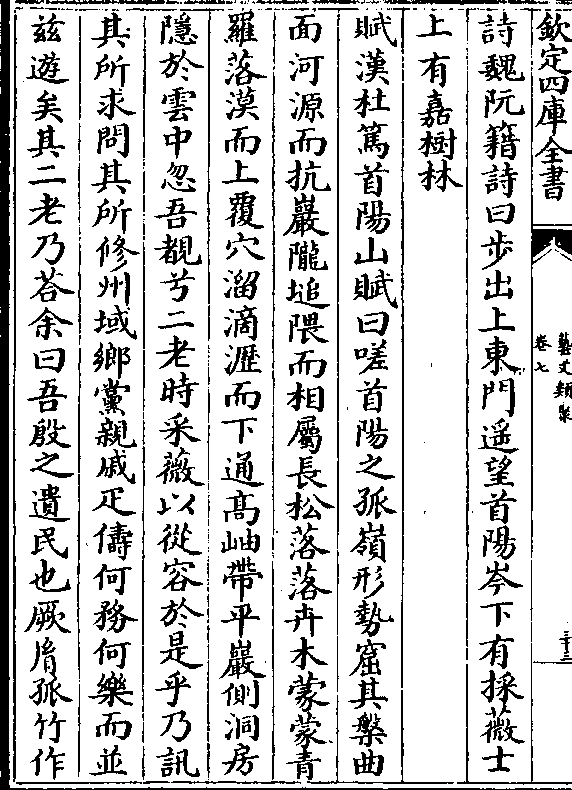 欽定四庫全書
藝文類聚
卷七
三十三
詩魏阮籍詩曰步出上東門遥望首陽岑下有採薇士
上有嘉樹林
賦漢杜篤首陽山賦曰嗟首陽之孤嶺形勢窟其槃曲
面河源而抗巖隴塠隈而相屬長松落落卉木蒙蒙青
羅落漠而上覆穴溜滴瀝而下通髙岫帶乎巖側洞房
隱於雲中忽吾覩兮二老時采薇以從容於是乎乃訊
其所求問其所修州域鄉黨親戚疋儔何務何樂而並
兹遊矣其二老乃荅余曰吾殷之遺民也厥𦙍孤竹作